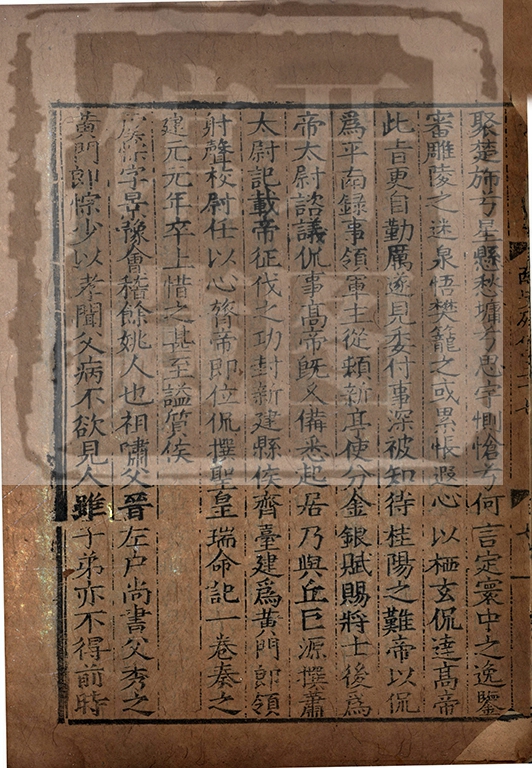 聚楚旆兮星懸愁墉兮思宇惻愴兮何言定寰中之逸鑒
審雕陵之迷泉悟樊籠之或累悵遐心以栖玄侃達髙帝
此旨更自勤厲遂見委付事深被知待桂陽之難帝以侃
爲平南録事領軍主從頓新亭使分金銀賦賜將士後爲
帝太尉諮議侃事髙帝旣久備悉起居乃與丘巨源撰蕭
太尉記載帝征伐之功封新建縣侯齊臺建爲黃門郎領
射聲校尉任以心膂帝即位侃撰聖皇瑞命記一卷奏之
建元元年卒上惜之甚至謚質侯
悰字景豫會稽餘姚人也祖嘯父晉左户尚書父秀之
黃門郎悰少以孝聞父病不欲見人雖子弟亦不得前時